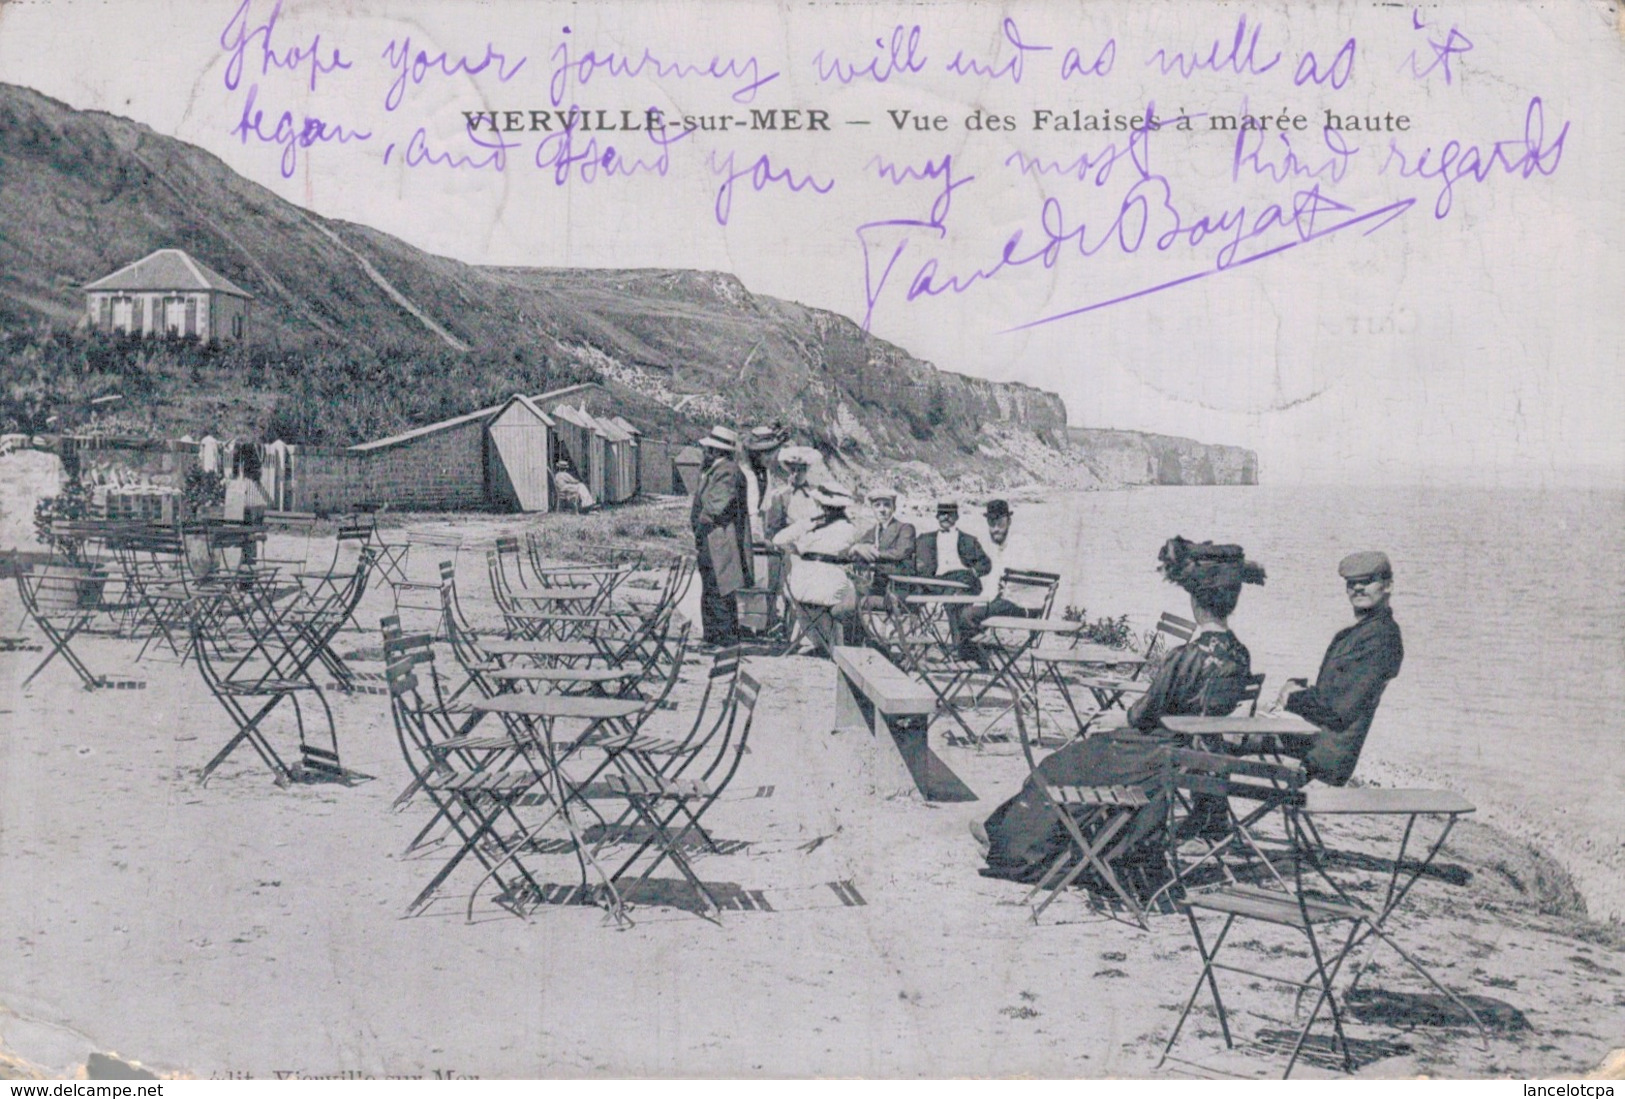 I hope your journey will end as well as it
began, and I send you my most kind regards
VIERVILLE-sur-MER — Vue des Falaises à marée haute
de Boyat
édit. Vierville-sur-Mer
www.delcampe.net
lancelotcpa